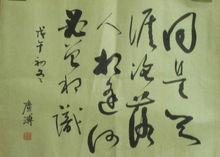 同是天
涯沦落
人相逢何
必曾相识
戊午初冬
广涛